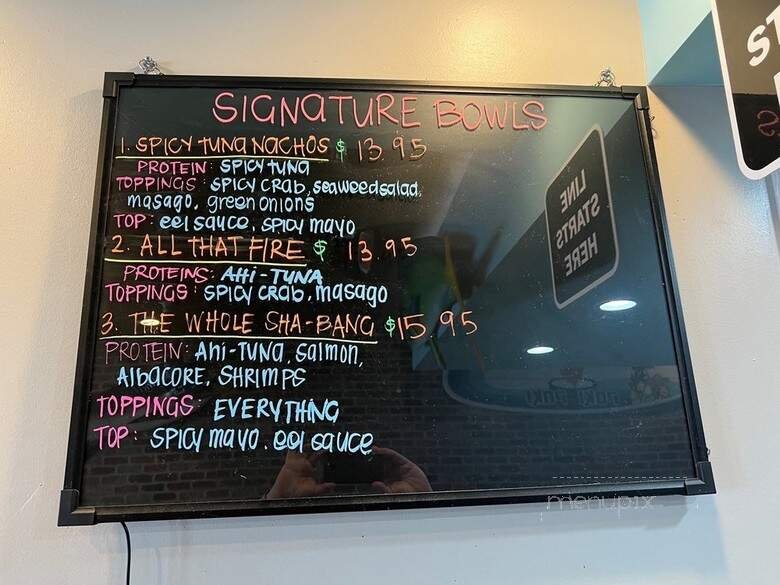 SIGNATURE BOWLS
1. SPICY TUNA NACHOS $ 13.95
PROTEIN: SPICY TUNA
TOPPINGS: SPICY CRAB, seaweed salad,
masago, green onions
TOP: eel sauce, SPICY mayo
2. ALL THAT FIRE $ 13.95
PROTEINS: AHI-TUNA
TOPPINGS: SPICY CRAB, masago
3. THE WHOLE SHA-BANG $15.95
PROTEIN: AHI-TUNA, Salmon,
AlBACORE, SHRIMPS
TOPPINGS: EVERYTHING
TOP: SPICY mayo. eel sauce
LINE
STARTS
HERE
ST
menupix